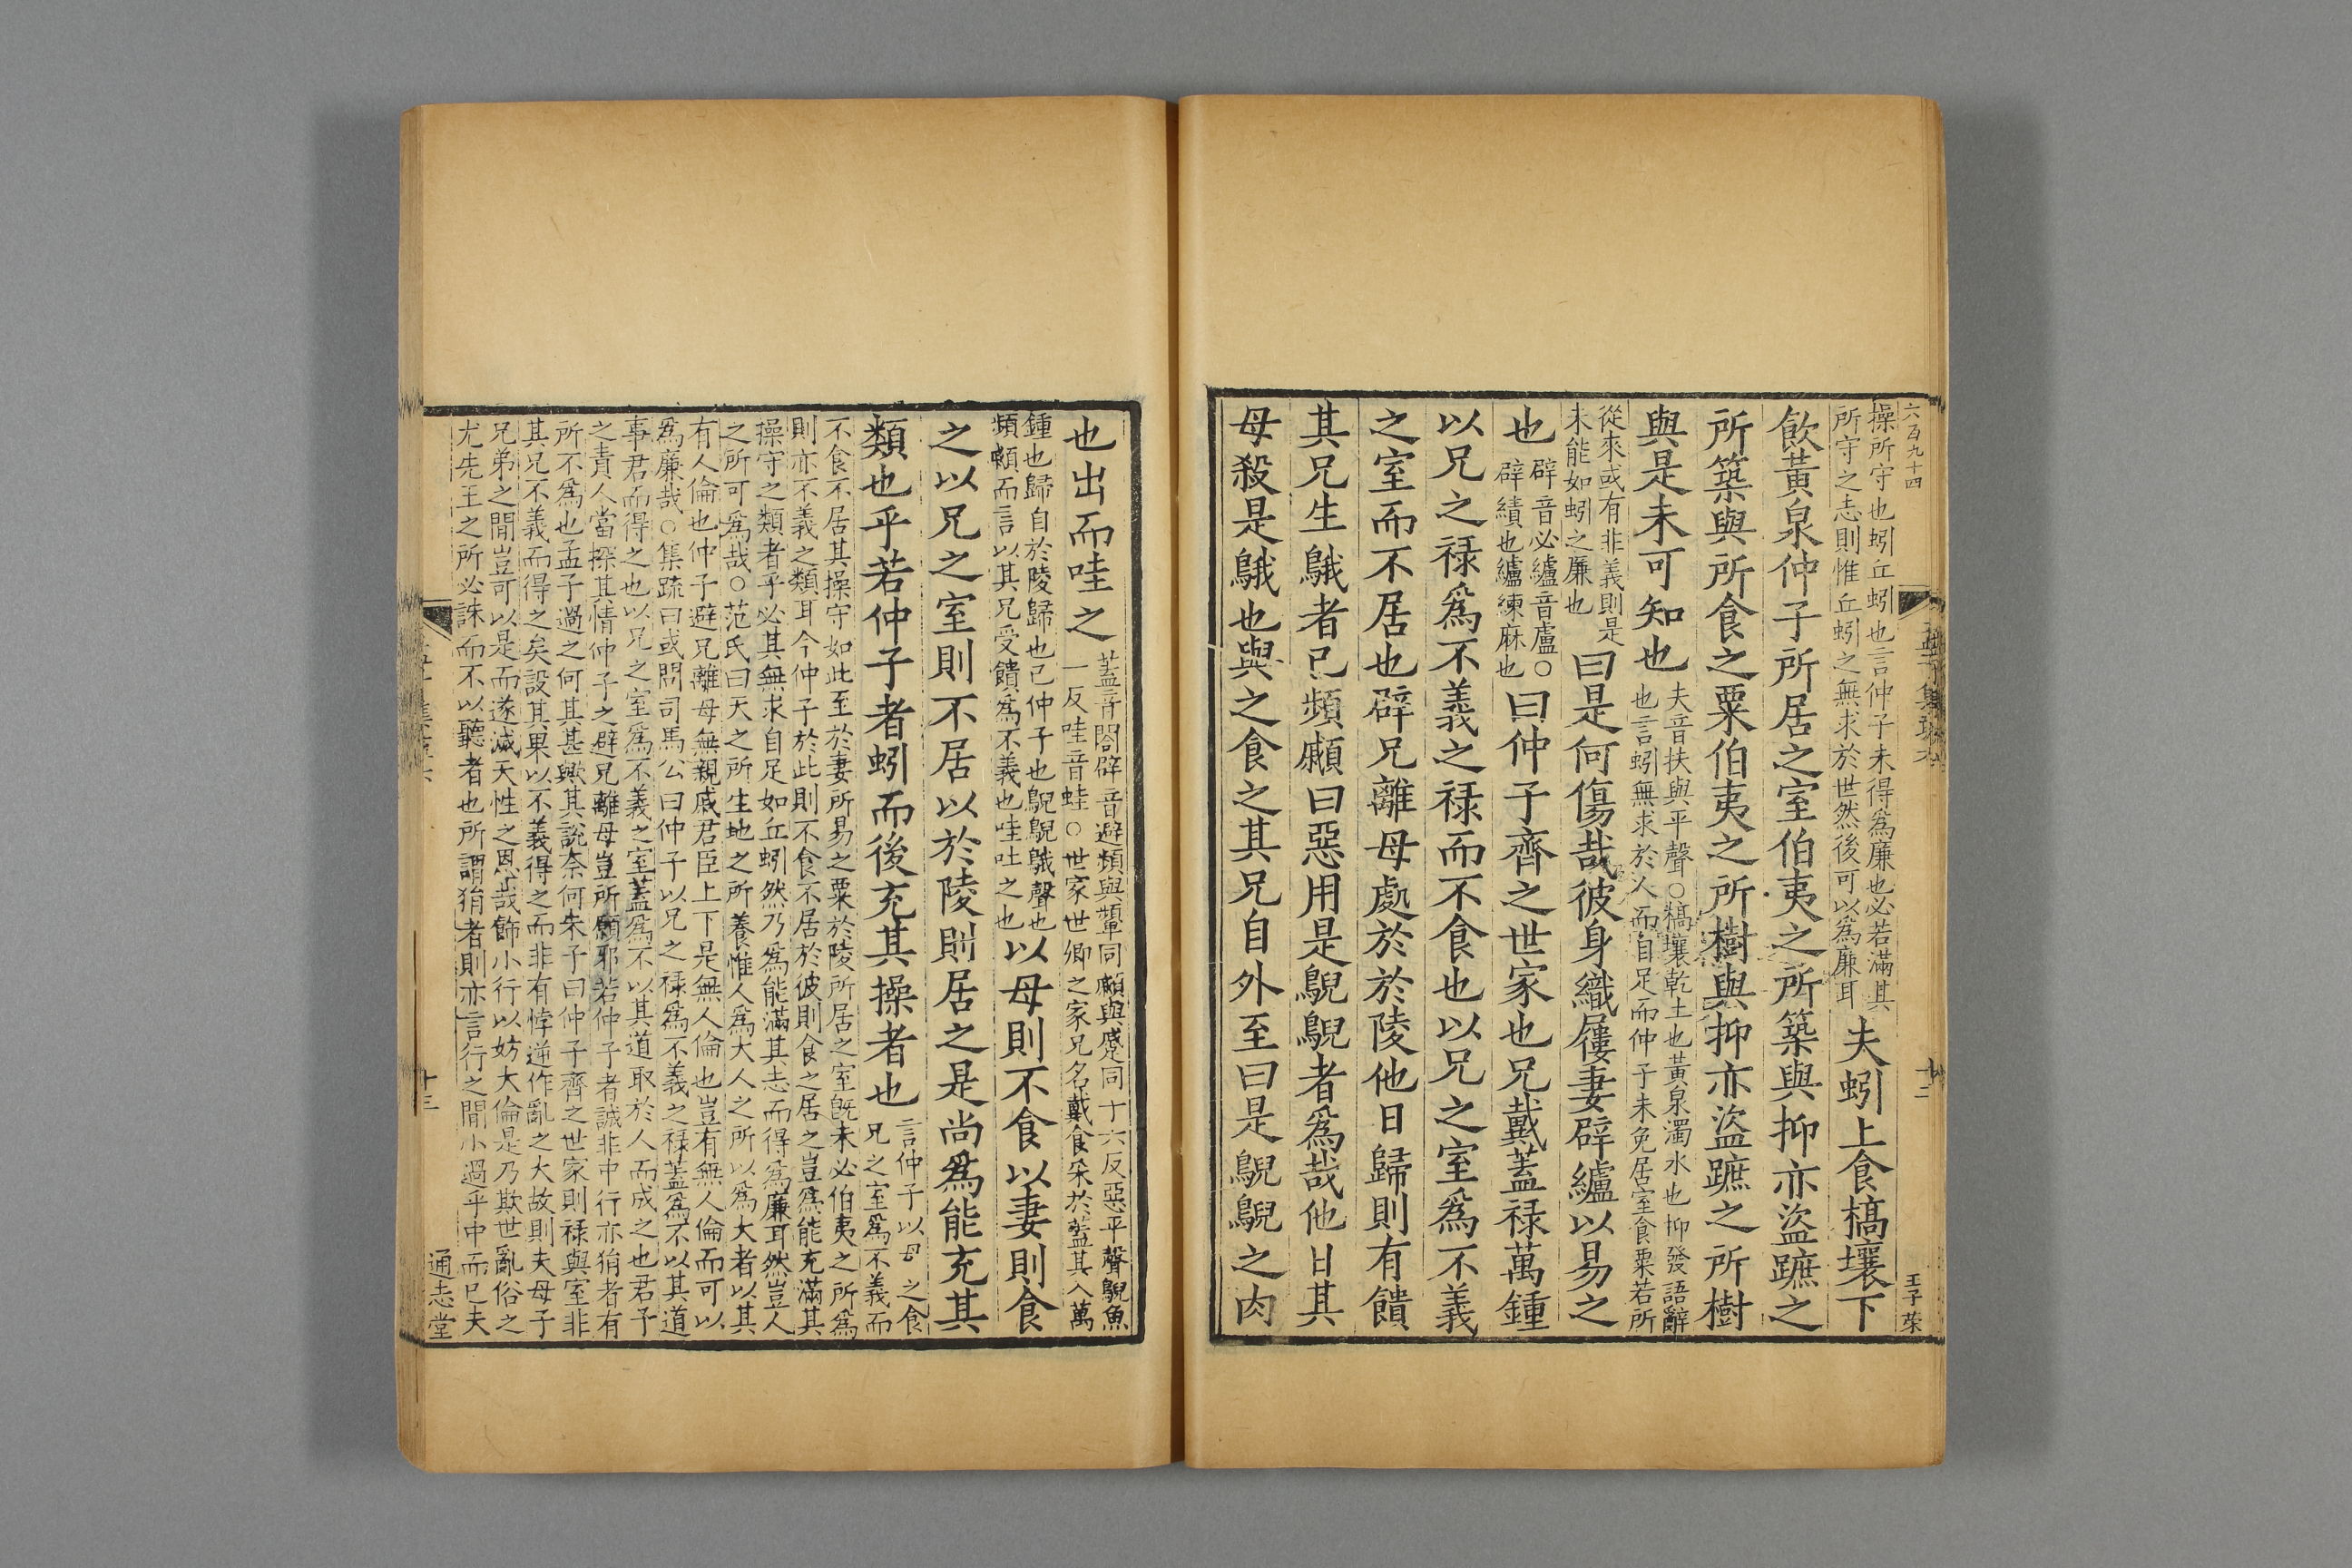 六百九十四
操所守也蚓丘蚓也言仲子未得爲廉也必若滿其
所守之志則惟丘蚓之無求於世然後可以爲廉耳
夫蚓上食槁壤下
飲黃泉仲子所居之室伯夷之所築與抑亦盜蹠之
所築與所食之粟伯夷之所樹與抑亦盜蹠之所樹
與是未可知也
夫音扶與平聲○槁壤乾土也黃泉濁水也抑發語辭
也言蚓無求於人而自足而仲子未免居室食粟若所
從來或有非義則是
未能如蚓之廉也
曰是何傷哉彼身織屨妻辟纑以易之
也
辟音必纑音盧○
辟績也纑練麻也
曰仲子齊之世家也兄戴蓋祿萬鍾
以兄之祿爲不義之祿而不食也以兄之室爲不義
之室而不居也辟兄離母處於於陵他日歸則有饋
其兄生鵝者己頻顣曰惡用是鶃鶃者爲哉他日其
母殺是鵝也與之食之其兄自外至曰是鶃鶃之肉
王子茱
十二
也出而哇之
蓋音閤辟音避頻與顰同顣與蹙同十六反惡平聲鶃魚
一反哇音蛙○世家世卿之家兄名戴食采於蓋其入萬
鍾也歸自於陵歸也己仲子也鶃鶃鵝聲也
頻顣而言以其兄受饋爲不義也哇吐之也
以母則不食以妻則食
之以兄之室則不居以於陵則居之是尚爲能充其
類也乎若仲子者蚓而後充其操者也
言仲子以母之食
兄之室爲不義而
不食不居其操守如此至於妻所易之粟於陵所居之室旣未必伯夷之所爲
則亦不義之類耳今仲子於此則不食不居於彼則食之居之豈爲能充滿其
操守之類者乎必其無求自足如丘蚓然乃爲能滿其志而得爲廉耳然豈人
之所可爲哉○范氏曰天之所生地之所養惟人爲大人之所以爲大者以其
有人倫也仲子避兄離母無親戚君臣上下是無人倫也豈有無人倫而可以
爲廉哉○集疏曰或問司馬公曰仲子以兄之祿爲不義之祿蓋爲不以其道
事君而得之也以兄之室爲不義之室蓋爲不以其道取於人而成之也君子
之責人當探其情仲子之辟兄離母豈所願邪若仲子者誠非中行亦狷者有
所不爲也孟子過之何其甚歟其說奈何朱子曰仲子齊之世家則祿與室非
其兄不義而得之矣設其果以不義得之而非有悖逆作亂之大故則夫母子
兄弟之閒豈可以是而遂滅天性之恩哉飾小行以妨大倫是乃欺世亂俗之
尤先王之所必誅而不以聽者也所謂狷者則亦言行之閒小過乎中而已夫
十三
通志堂